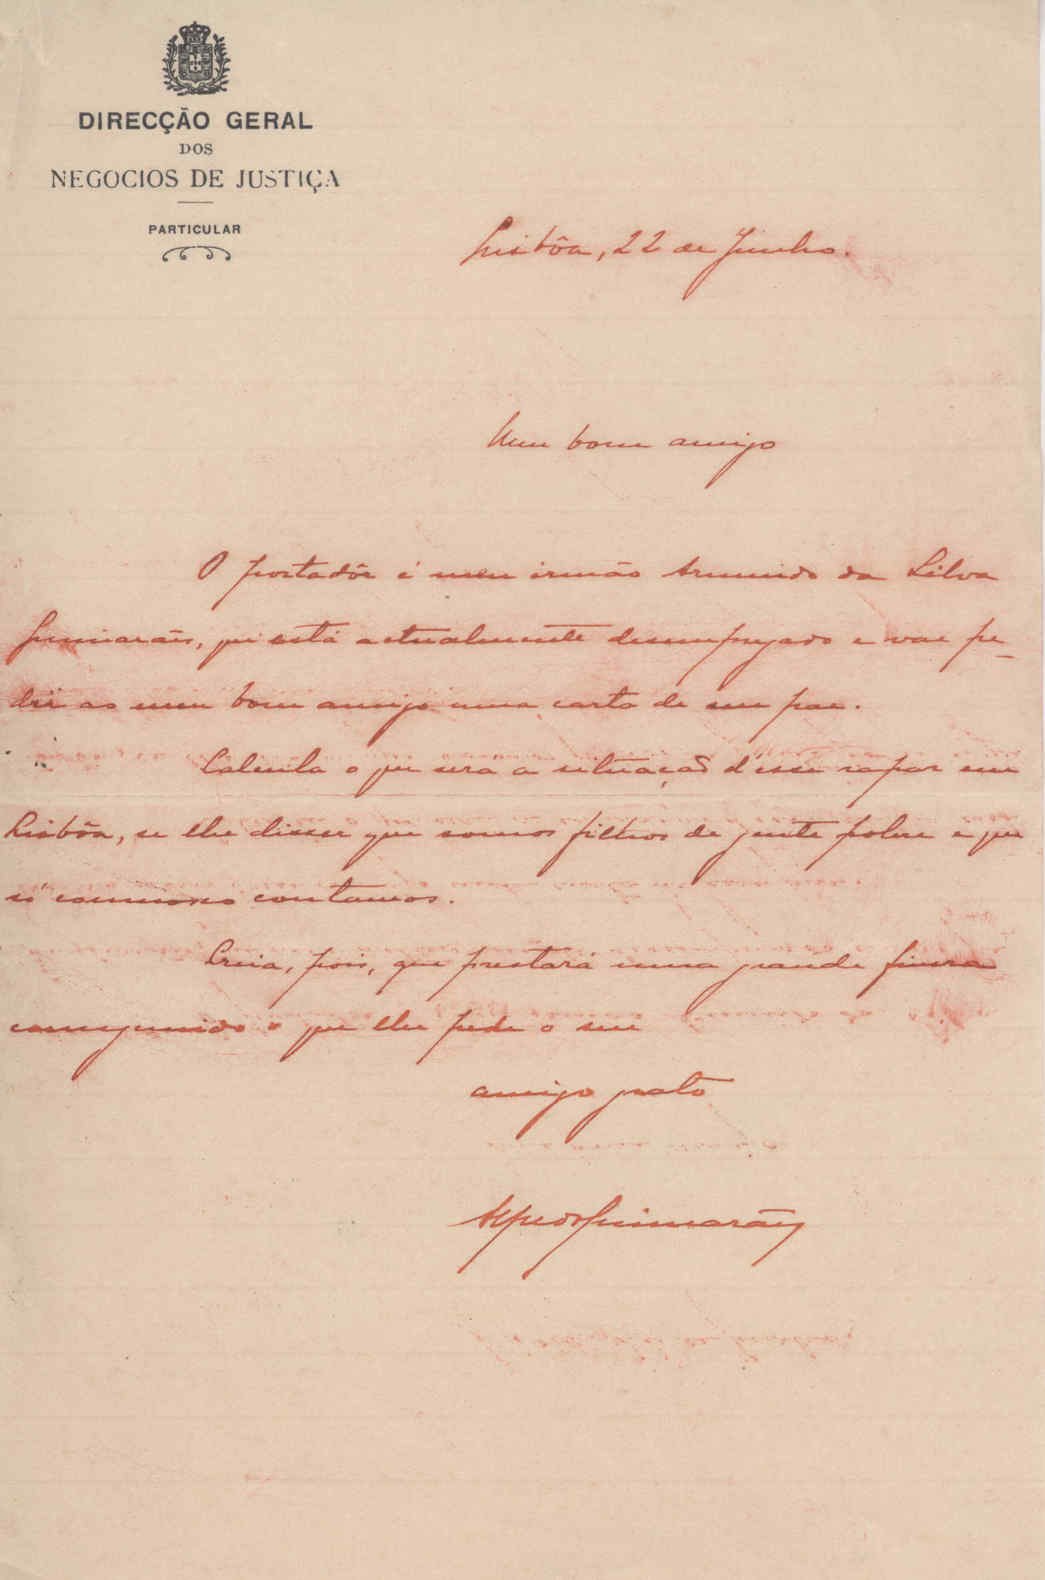 DIRECÇÃO GERAL
DOS
NEGOCIOS DE JUSTIÇA
PARTICULAR
Lisbôa, 22 de Junho.
Meu bom amigo
O portadôr é meu irmão Armindo da Silva
Guimarães, que está actualmente desempregado e vae pe-
dir ao meu bom amigo uma carta de seu pae.
Calcula o que será a situação d'esse rapaz em
Lisbôa, se lhe disser que somos filhos de gente pobre e que
só comnosco contamos.
Creia, pois, que prestará uma grande fineza
conseguindo o que lhe pede o seu
amigo grato
Guimarães